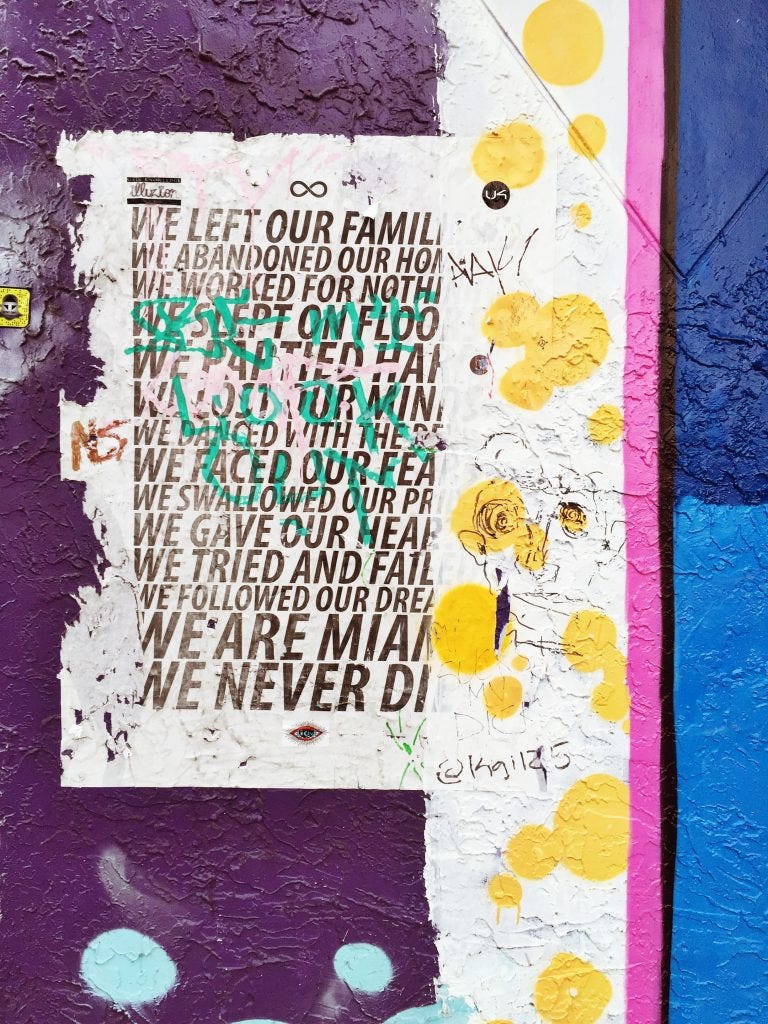 illuzion
UK
WE LEFT OUR FAMILI
WE ABANDONED OUR HOM
WE WORKED FOR NOTHI
WE SLEPT ON FLOO
WE PARTIED HAR
WE LOST OUR MIND
WE DANCED WITH THE DE
WE FACED OUR FEAR
NS
WE SWALLOWED OUR PRI
WE GAVE OUR HEAR
WE TRIED AND FAILE
WE FOLLOWED OUR DREA
WE ARE MIAM
WE NEVER DIE